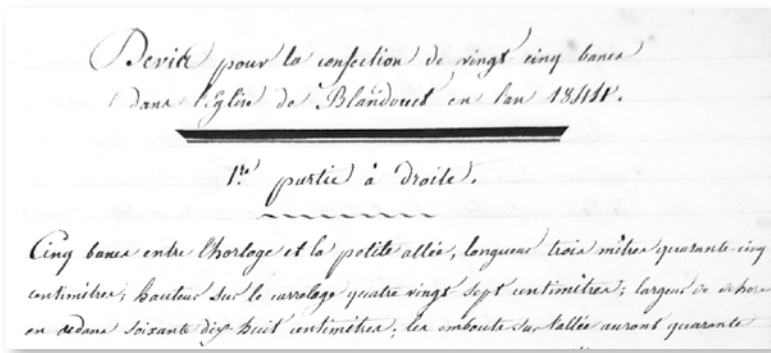 Devis pour la confection de vingt cinq bancs
dans l'Eglise de Blandouet en l'an 1844.
1re partie à droite.
Cinq bancs entre l'horloge et la petite allée, longueur trois mètres quarante-cinq
centimètres; hauteur sur le carrelage quatre vingt-sept centimètres; largeur de dehors
en dedans soixante dix-huit centimètres; les embouts sur l'allée auront quarante